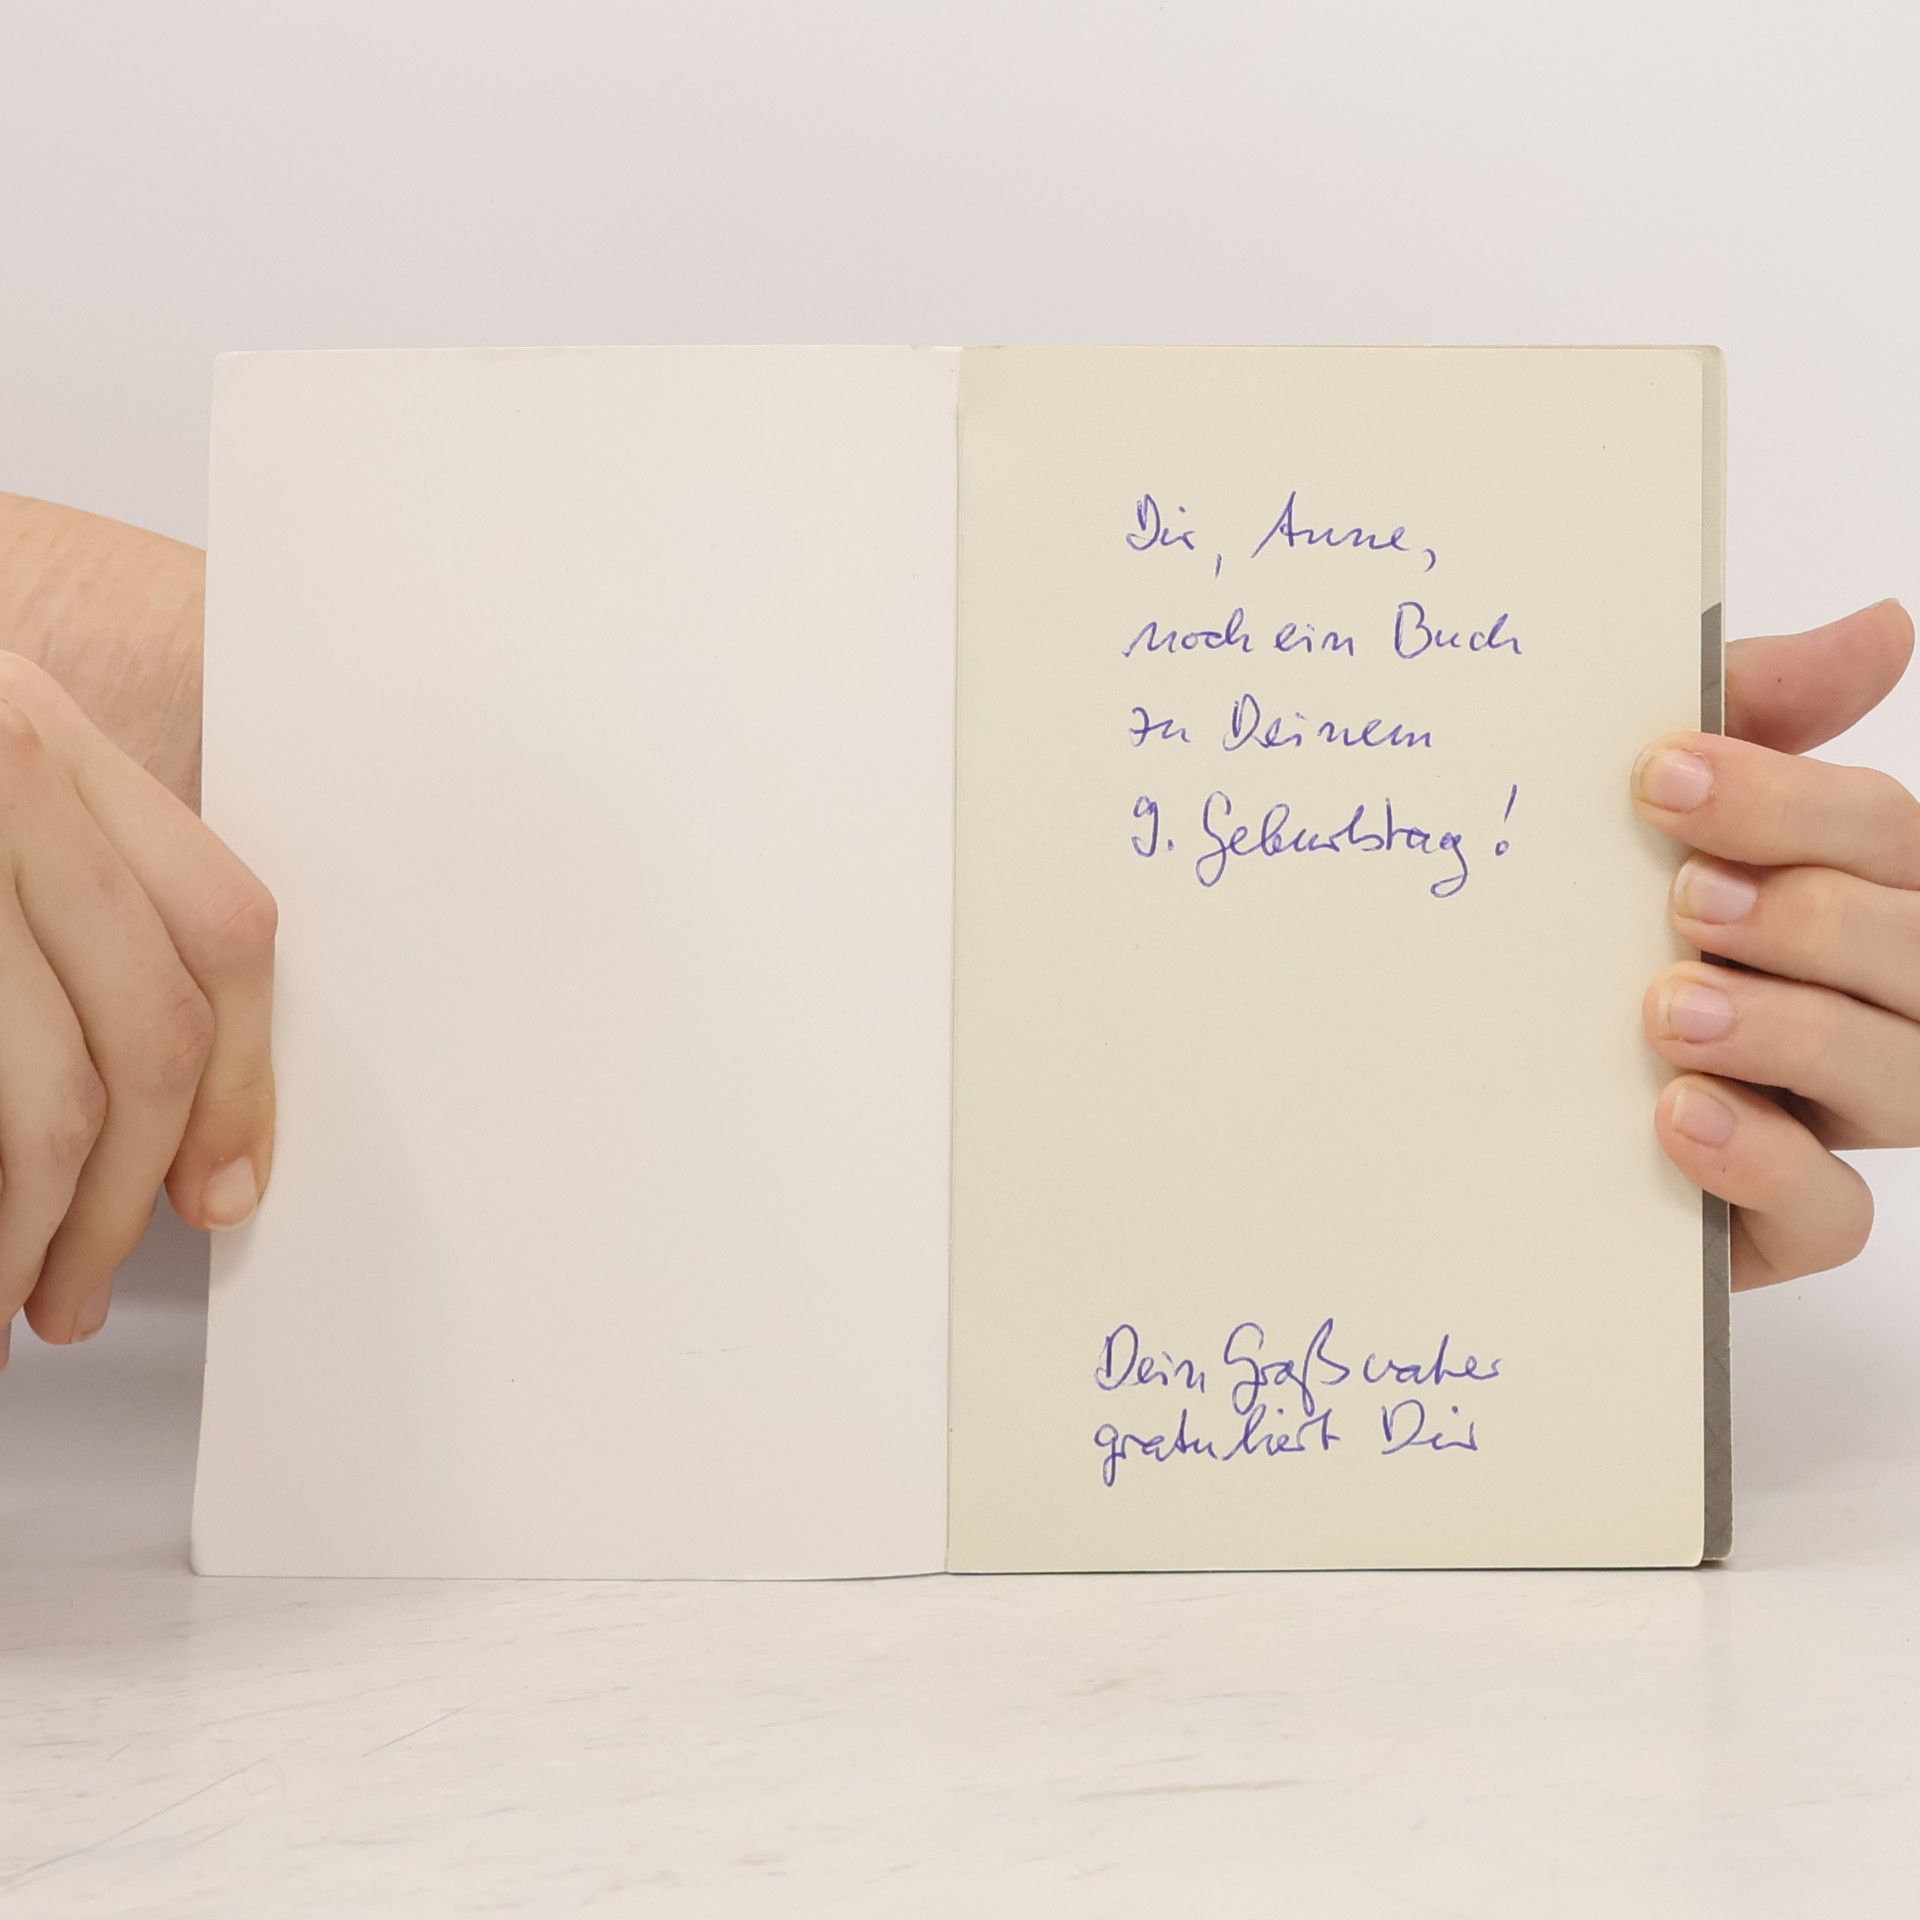 Dir, Anne,
noch ein Buch
zu Deinem
9. Geburtstag!
Dein Großvater
gratuliert Dir